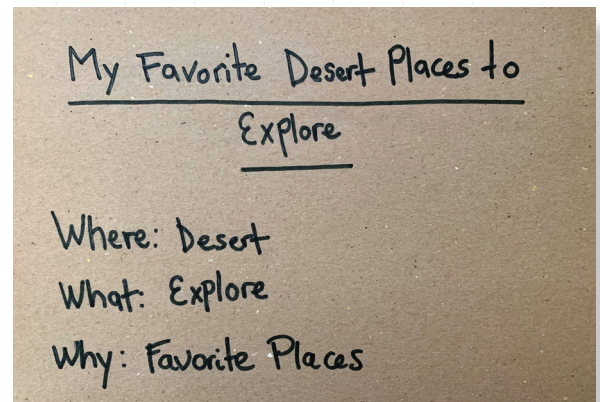 My Favorite Desert Places to
Explore
Where: Desert
What: Explore
Why: Favorite Places